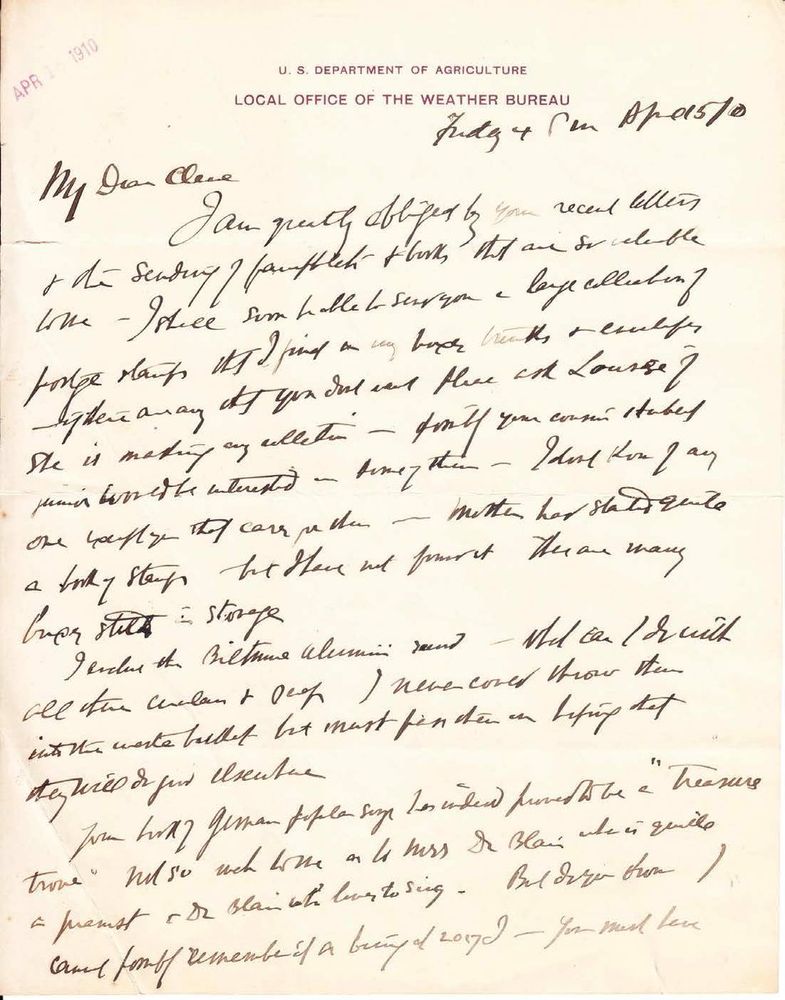 APR 1910
U. S. DEPARTMENT OF AGRICULTURE
LOCAL OFFICE OF THE WEATHER BUREAU
Friday 4 Pm April 15/10
My Dear Cleve
I am greatly obliged by your recent letters
& the sending of pamphlets & books that are so valuable
to me – I shall soon be able to send you a large collection of
postge stamps that I find in my boxes trunks & envelopes
– if there are any that you dont want please ask Louise if
she is making any collection – possibly your cousin
junior would be interested in some of them – I dont know of any
one except you that cares for them – mother has started quite
a book of stamps but I have not There are many
boxes still in storage
I enclose the Biltmore alumni – what can I do with
all these circulars & I never could throw them
into the waste basket but must pass them on hoping that
they will do good elsewhere
Your book of German popular songs has indeed proved to be a "treasure
trove" not so much to me as to Mrs Dr Blair who is quite
a pianist & Dr Blair who loves to sing. But do you know I
cannot possibly remember – You must have